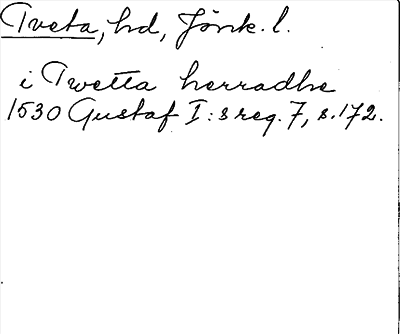 Tveta, hd, Jönk. l.
i Twetta herradhe
1530 Gustaf I:s reg. 7, s. 172.